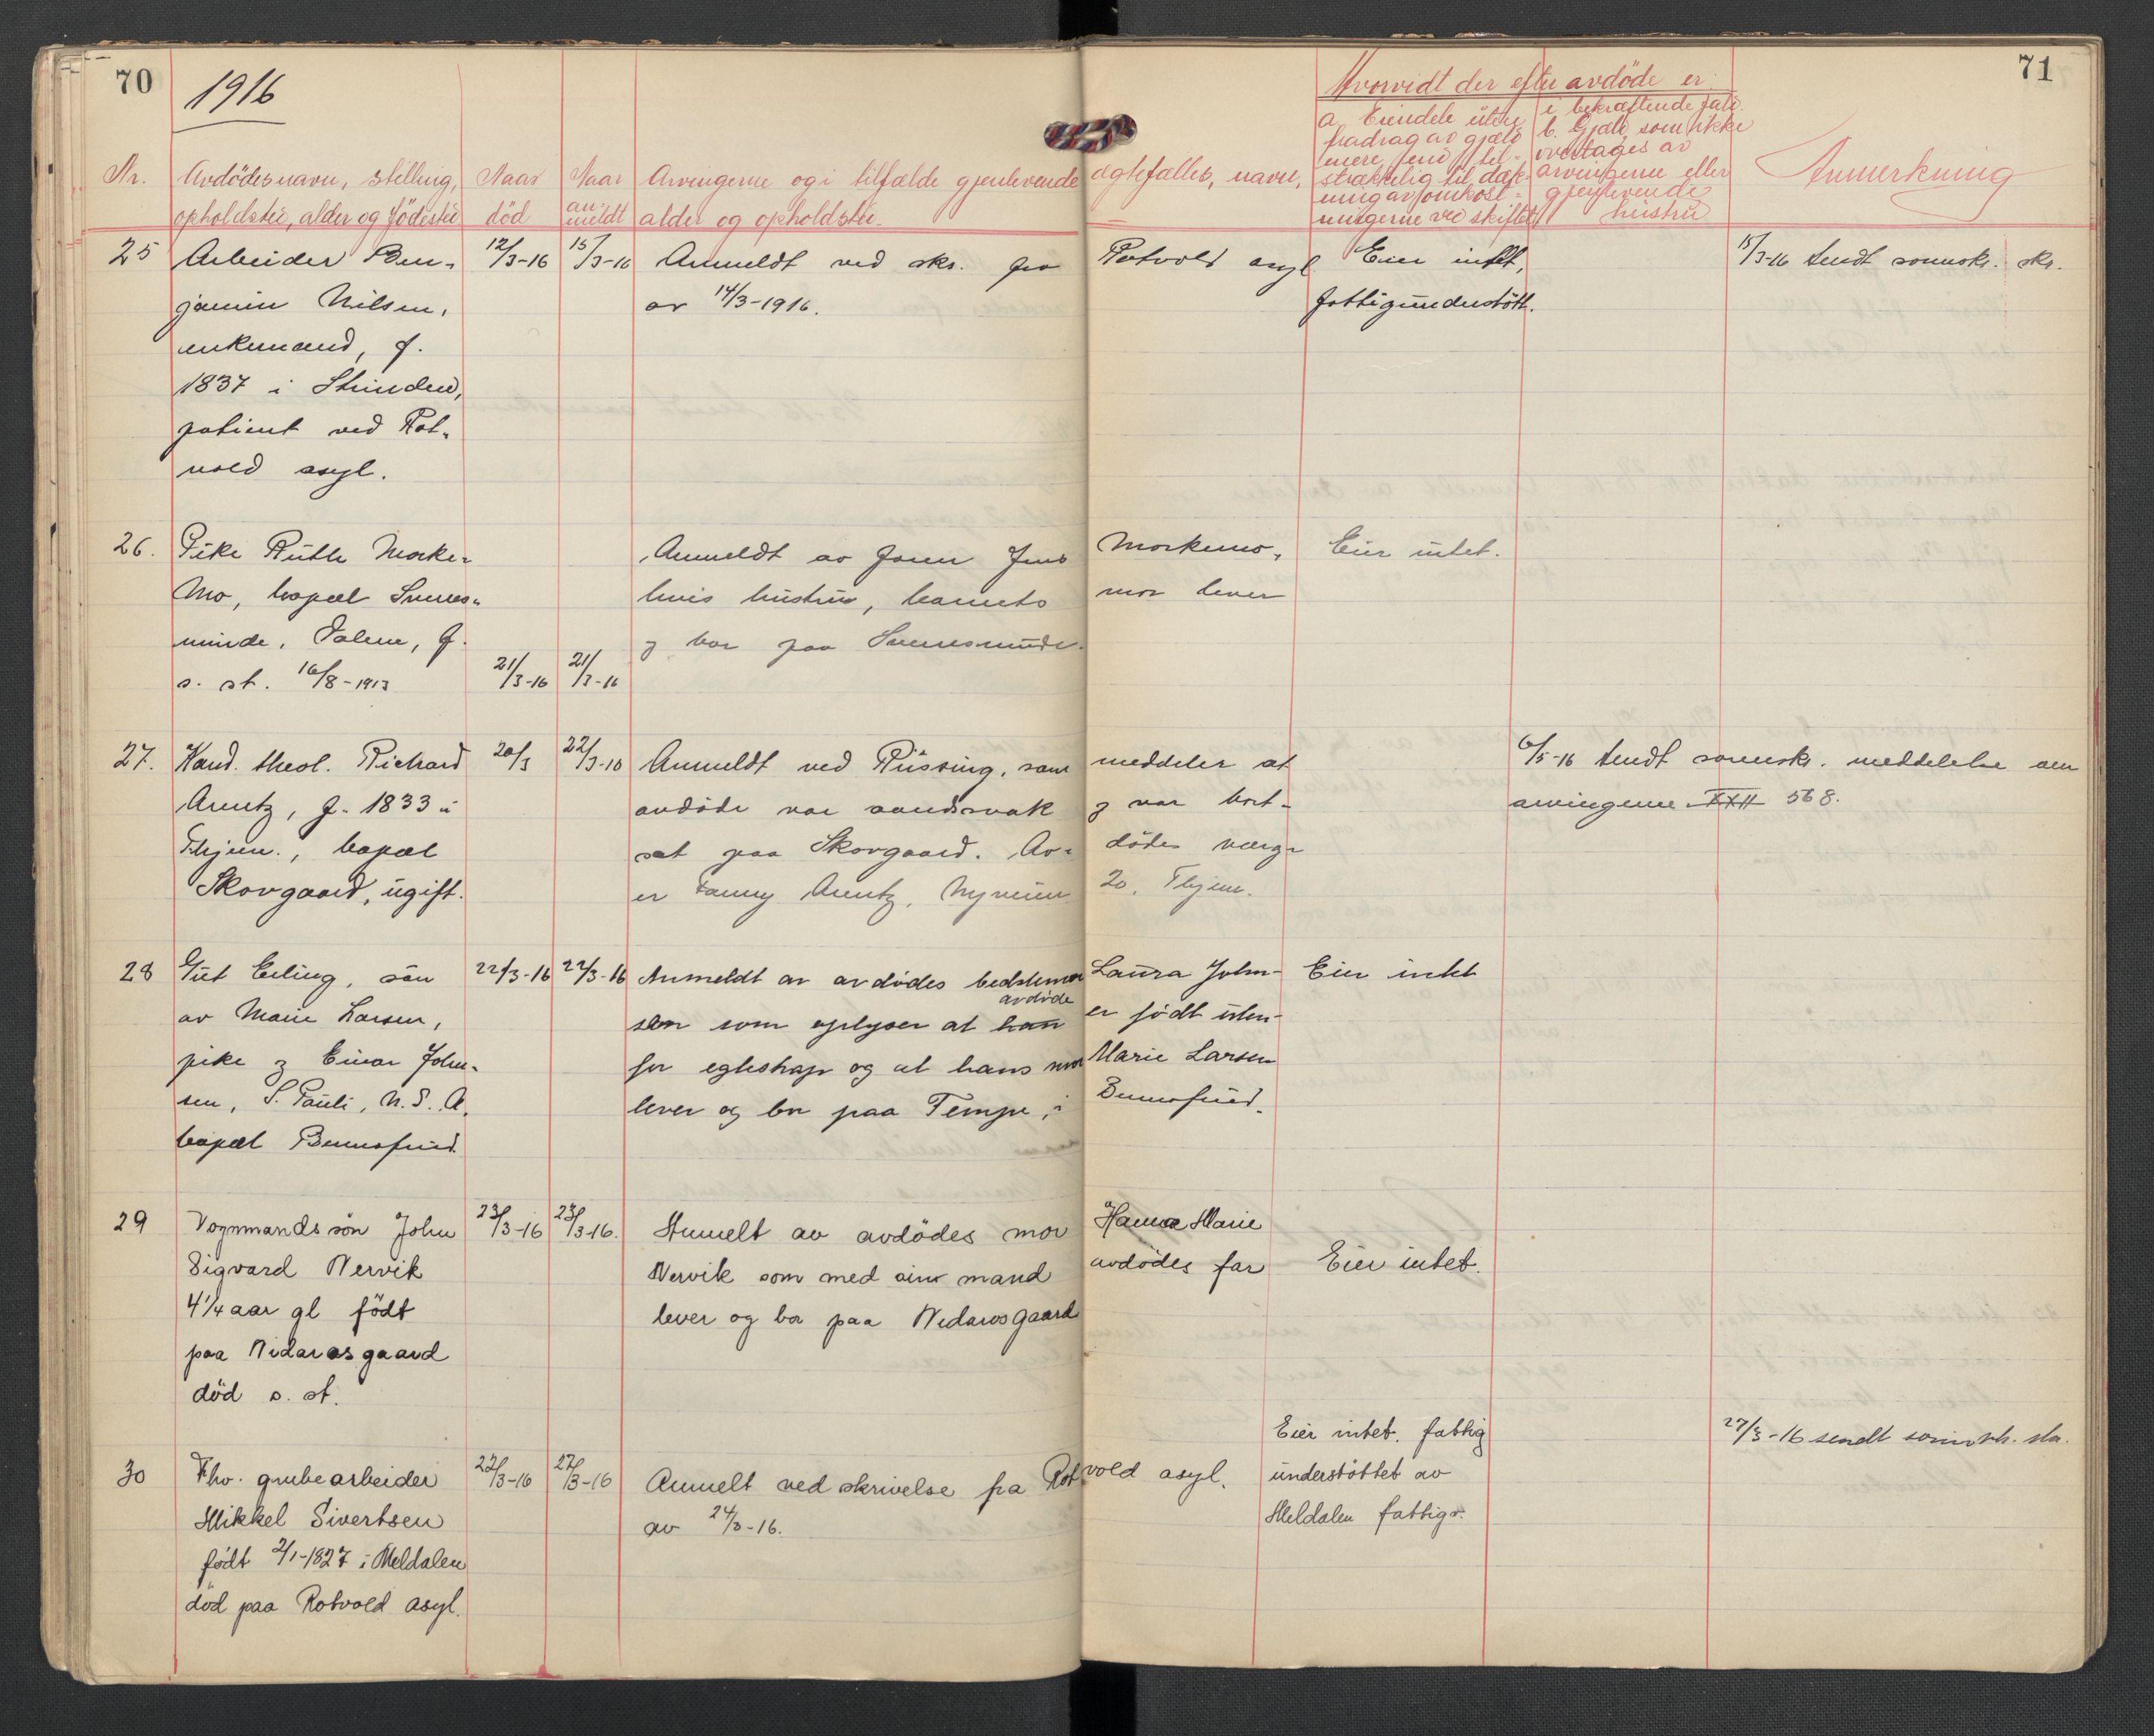 70
1916
71
Hvorvidt der efter avdöde er
a. Eiendele uten
fradrag av gjæld
mere end til-
strækkelig til dæk-
ning av omkost-
ningerne ved skiftet
i bekræftende fald.
b. Gjæld som ikke
overtages av
arvingerne eller
gjenlevende
hustru
Anmerkning
Nr. Avdödes navn, stilling, Naar Naar Arvingerne og i tilfælde gjenlevende ægtefælles, navn,
opholdsted, alder og födested död an-meldt alder og opholdsted.
25 Arbeider Ben- 12/3-16 15/3-16 Anmeldt ved skr. fra Rotvold asyl Eier intet, 15/3-16 sendt sorensk. skr.
jamin Nilsen, av 14/3-1916. fattigunderstött.
enkemand, f.
1837 i Strinden,
patient ved Rot-
vold asyl.
26. Pike Ruth Morke- Anmeldt av Jens Morkemo, Eier intet.
mo, bopæl Svenes- hvis hustru, barnets mor lever
minde, f. & bor paa Svenesminde.
s. st. 16/8-1913 21/3-16 21/3-16
27. Kand. theol. Richard 20/3 22/3-16 Anmeldt ved Rüssing, som meddeler at 6/5-16 sendt sorensk. meddelelse om
Arentz, f. 1833 i avdöde var aandssvak & var bort- arvingerne XXII 568.
Thjem., bopæl sat paa Skovgaard. Av- dödes verge
Skovgaard, ugift. er Fanny Arentz, 20, Thjem.
28 Gut Erling, sön 22/3-16 22/3-16 Anmeldt av avdödes bedstemor Laura John- Eier intet
av Marie Larsen, sen som oplyser at han avdöde er födt uten-
pike & Einar John- for egteskap og at hans mor Marie Larsen
sen, S. Pauli, N. S. A. lever og bor paa Tempe,
bopæl
29 Vognmands sön John 23/3-16 23/3-16. Anmelt av avdödes mor Hanna Marie
Sigvard Nervik Nervik som med sin mand avdödes far Eier intet.
4 1/4 aar gl födt lever og bor paa Nidarosgaard
paa Nidarosgaard
död s. st.
30 Fhv. grubearbeider 22/3-16 27/3-16 Anmelt ved skrivelse fra Rotvold asyl. Eier intet. fattig 27/3-16 sendt sorinskr. skr.
Mikkel Sivertsen av 24/3-16. understöttet av
födt 2/1-1827 i Meldalen Meldalen fattigv.
död paa Rotvold asyl.